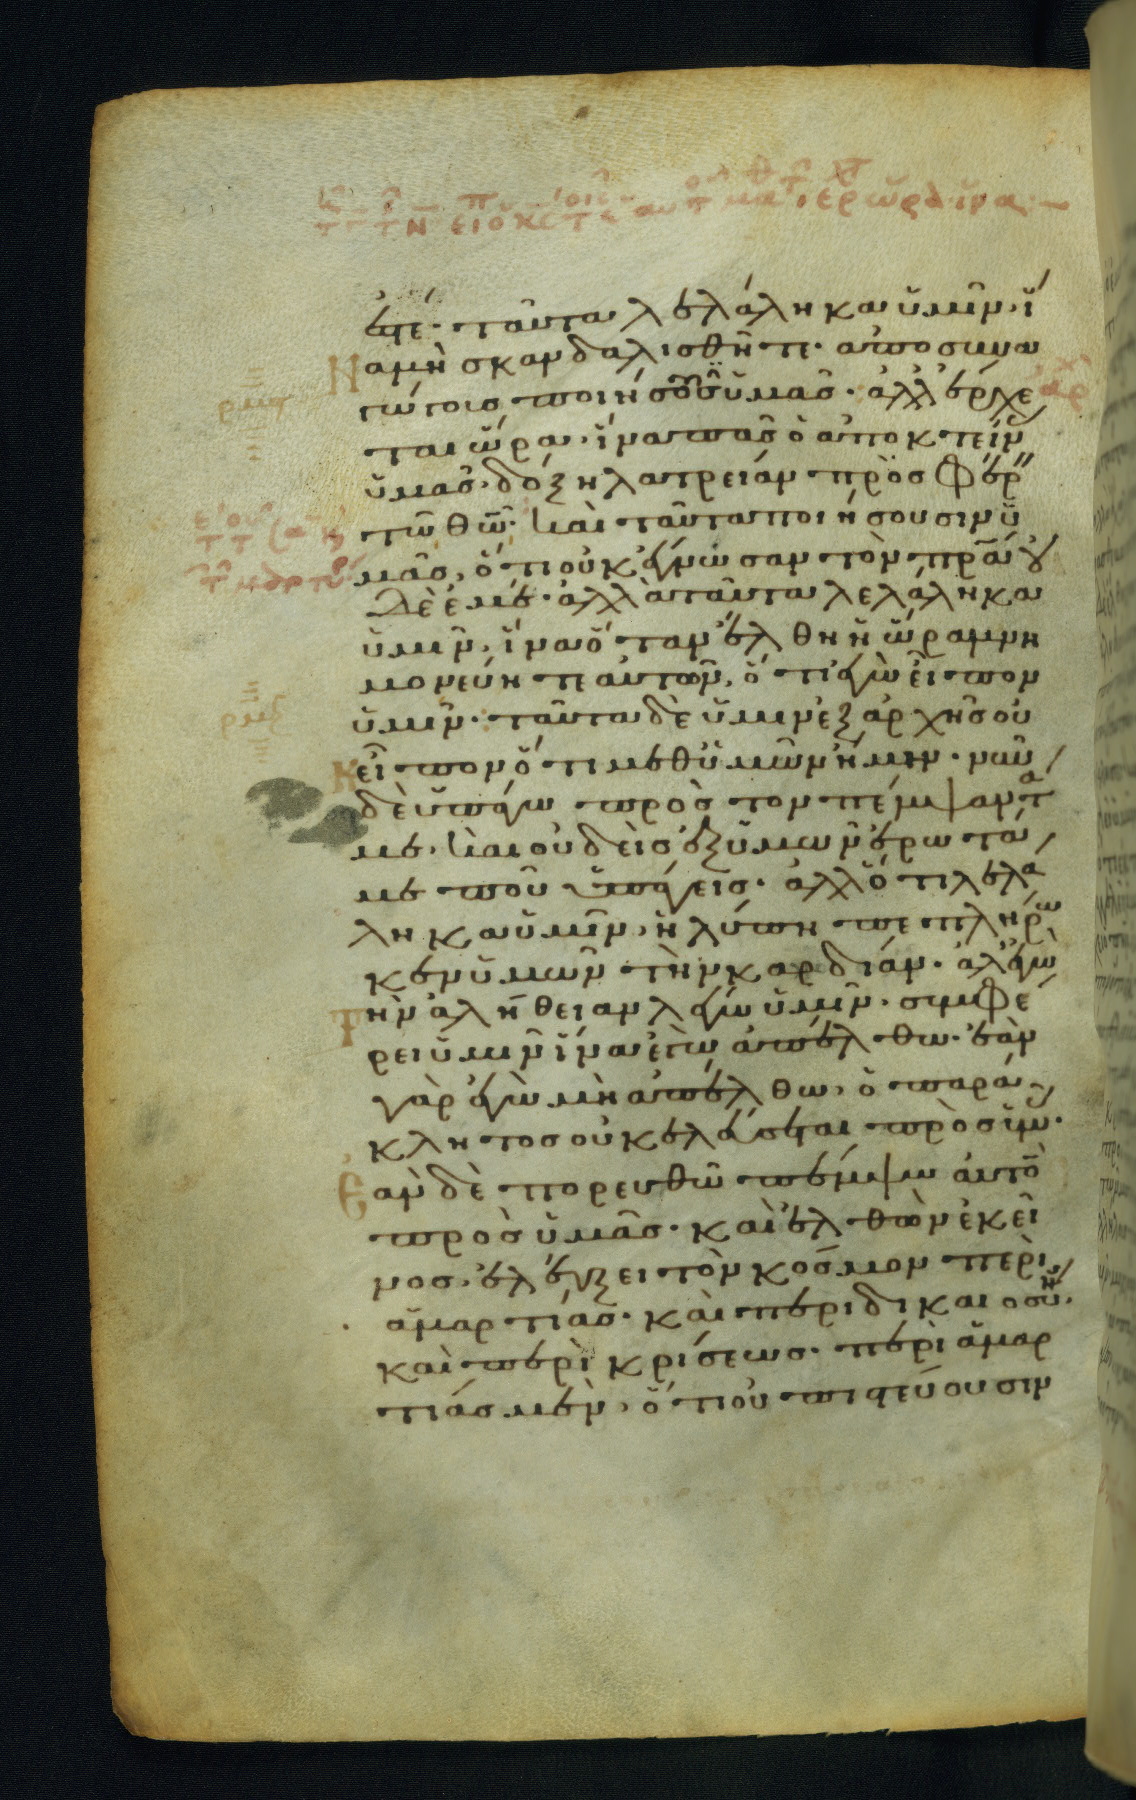 ἐστέ· ταῦτα λελάληκα ὑμῖν, ἵ
ναμὴ σκανδαλισθῆτε· ἀποσυνα
γώγους ποιήσουσιν ὑμᾶς· ἀλλ ἔρχε
ται ὥρα, ἵνα πᾶς ὁ ἀποκτείν
ὑμᾶς, δόξη λατρείαν προσφέρ
τῶ θῶ· καὶ ταῦτα ποιήσουσιν ὑ
μᾶς, ὅτι οὐκ ἔγνωσαν τὸν πρα οὐ
δὲ ἐμέ· ἀλλὰ ταῦτα λελάληκα
ὑμῖν, ἵνα ὅταν ἔλθη ἡ ὥρα μνη
μονεύητε αὐτῶν, ὅτι ἐγὼ εἶπον
ὑμῖν· ταῦτα δὲ ὑμῖν ἐξαρχῆς οὐ
κ εἶπον ὅτι μεθ ὑμῶν ἤμην· νῦν
δὲ ὑπάγω πρὸς τον πέμψαντά
με, καὶ οὐδεὶς ἐξ ὑμῶν ἐρωτᾶ
με ποῦ ὑπάγεις· ἀλλ ὅτι λελά
ληκα ὑμῖν, ἡ λύπη πεπλήρω
κεν ὑμῶν τὴν καρδίαν· ἀλ ἐγὼ
τὴν ἀλήθειαν λέγω ὑμῖν· συμφέ
ρει ὑμῖν ἵνα ἐγὼ ἀπέλθω· ἐὰν
γὰρ ἐγὼ μὴ ἀπέλθω, ὁ παρά
κλητος οὐκ ἐλεύσεται πρὸς ὑμ·
Ἐὰν δὲ πορευθῶ πέμψω αὐτὸ
πρὸς ὑμᾶς· καὶ ἐλθὼν ἐκεῖ
νος, ἐλέγξει τὸν κόσμον περὶ
ἁμαρτίας· καὶ περὶ δικαιοσύνης·
καὶ περὶ κρίσεως· περὶ ἁμαρ
τίας μὲν, ὅτι οὐ πιστεύουσιν